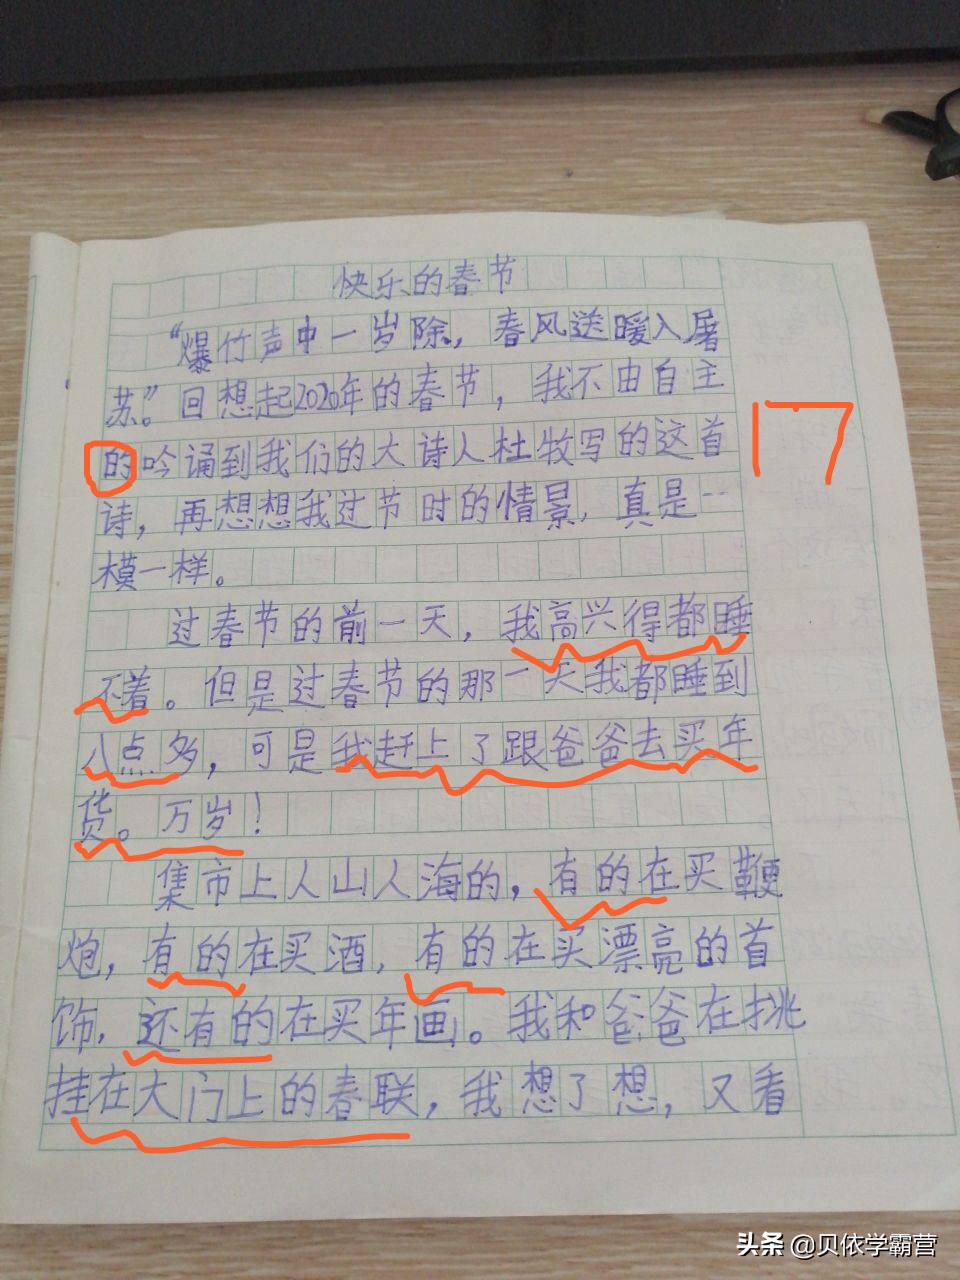 快乐的春节
“爆竹声中一岁除，春风送暖入屠
苏。”回想起2020年的春节，我不由自主
的吟诵到我们的大诗人杜牧写的这首
诗，再想想我过节时的情景，真是一
模一样。
过春节的前一天，我高兴得都睡
不着。但是过春节的那一天我都睡到
八点多，可是我赶上了跟爸爸去买年
货。万岁！
集市上人山人海的，有的在买鞭
炮，有的在买酒，有的在买漂亮的首
饰，还有的在买年画。我和爸爸在挑
挂在大门上的春联，我想了想，又看
17
头条 @贝依学霸营